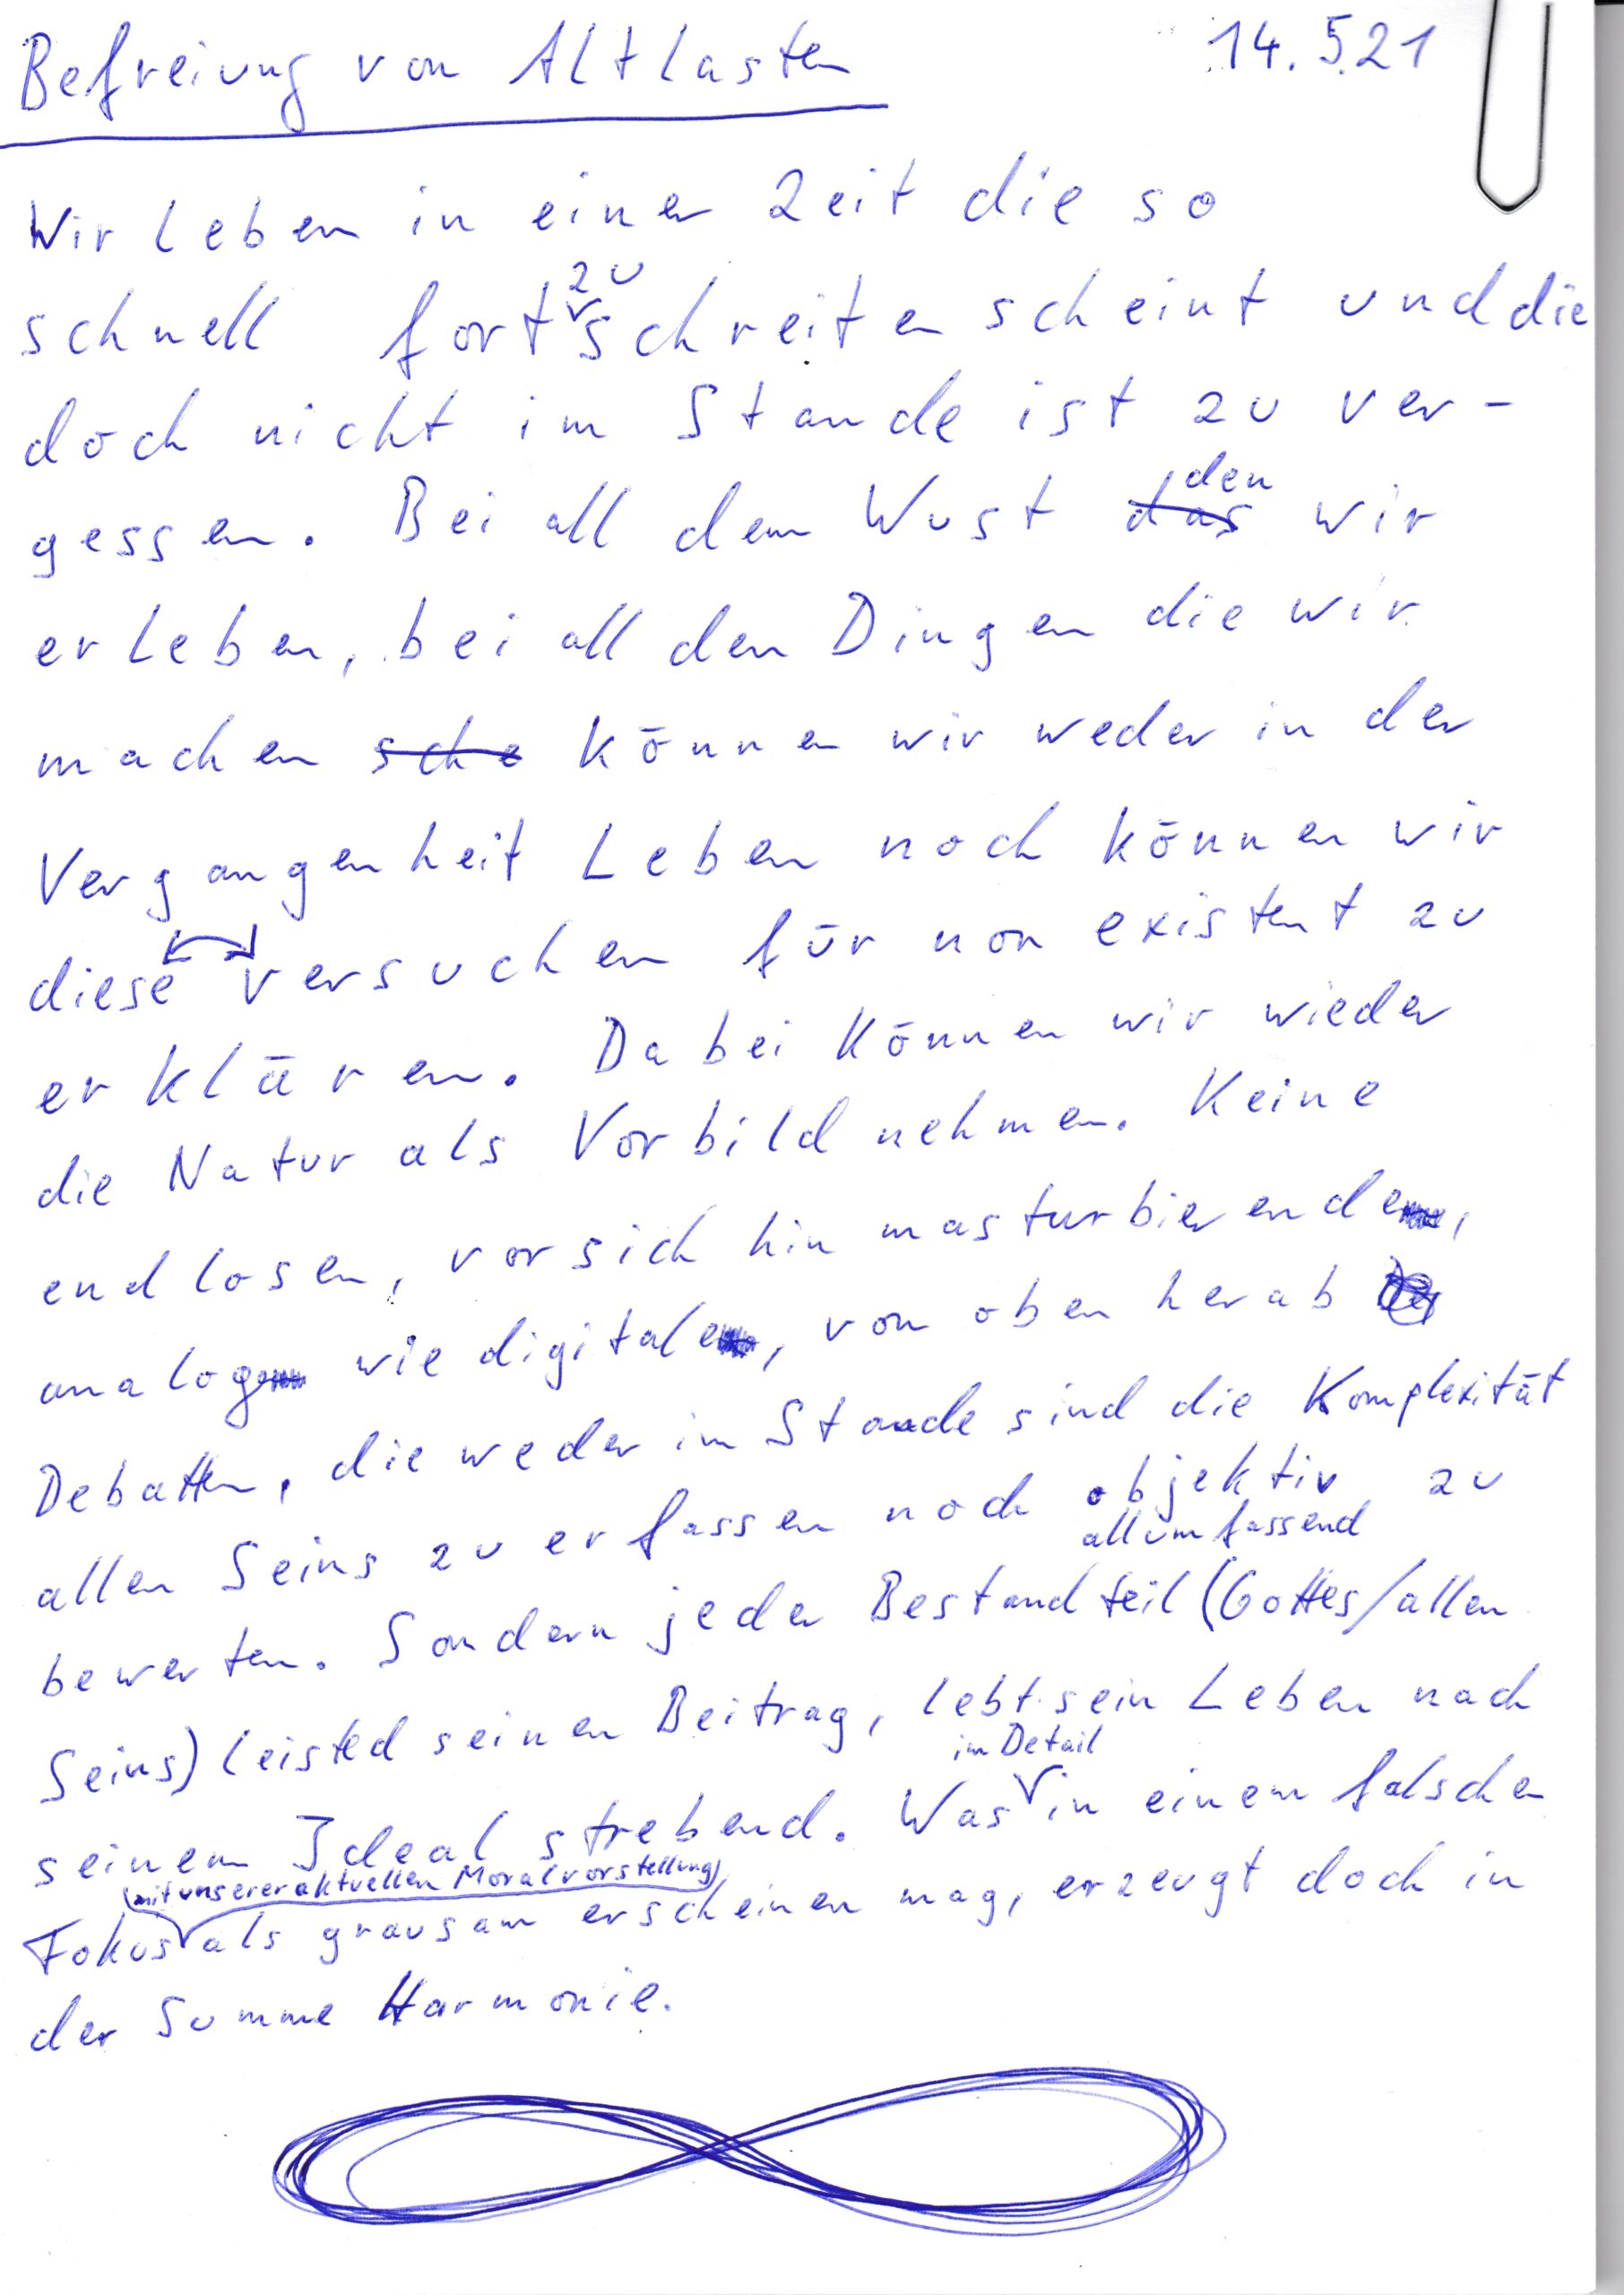 Befreiung von Altlasten 14.5.21
Wir leben in einer Zeit die so
zu
schnell fortschreiten scheint und die
doch nicht im Stande ist zu ver-
den
gessen. Bei all dem Wust das wir
erleben, bei all den Dingen die wir
machen sche können wir weder in der
Vergangenheit Leben noch können wir
diese versuchen für non existent zu
erklären. Dabei können wir wieder
die Natur als Vorbild nehmen. Keine
endlosen, vor sich hin masturbierende,
analog wie digitale, von oben herab
Debatten, die weder im Stande sind die Komplexität
allen Seins zu erfassen noch objektiv zu
allumfassend
bewerten. Sondern jeder Bestandteil (Gottes/allen
Seins) leisted seinen Beitrag, lebt sein Leben nach
im Detail
seinem Ideal strebend. Was in einem falschen
(mit unserer aktuellen Moralvorstellung)
Fokus als grausam erscheinen mag, erzeugt doch in
der Summe Harmonie.